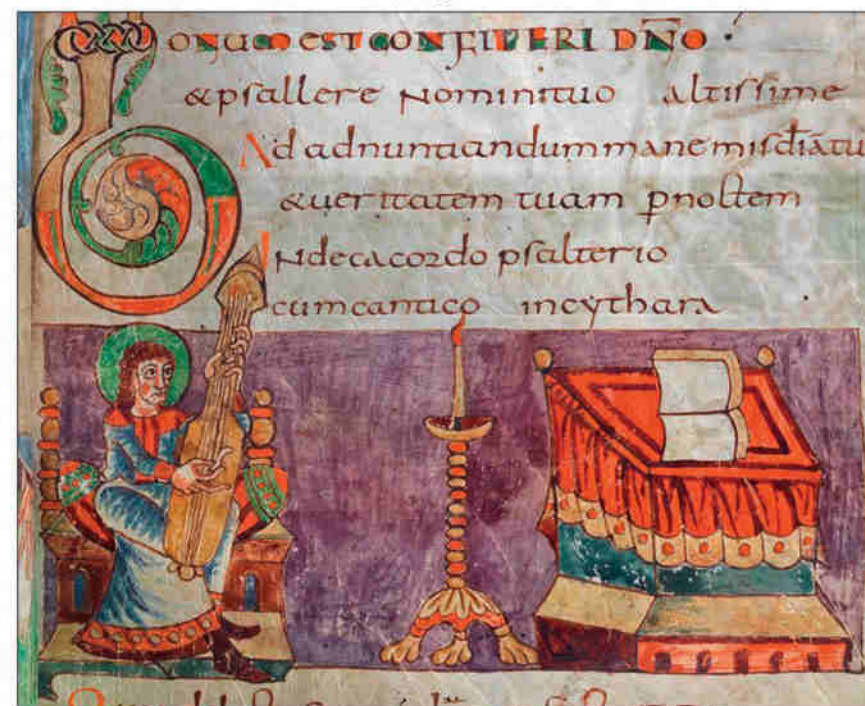 BONUM EST CONFITERI DN̄O
& psallere nomini tuo altissime
Ad adnuntiandum mane mis̄diā tu
& ueritatem tuam p̄ noctem
In decacordo psalterio
cum cantico in cythara